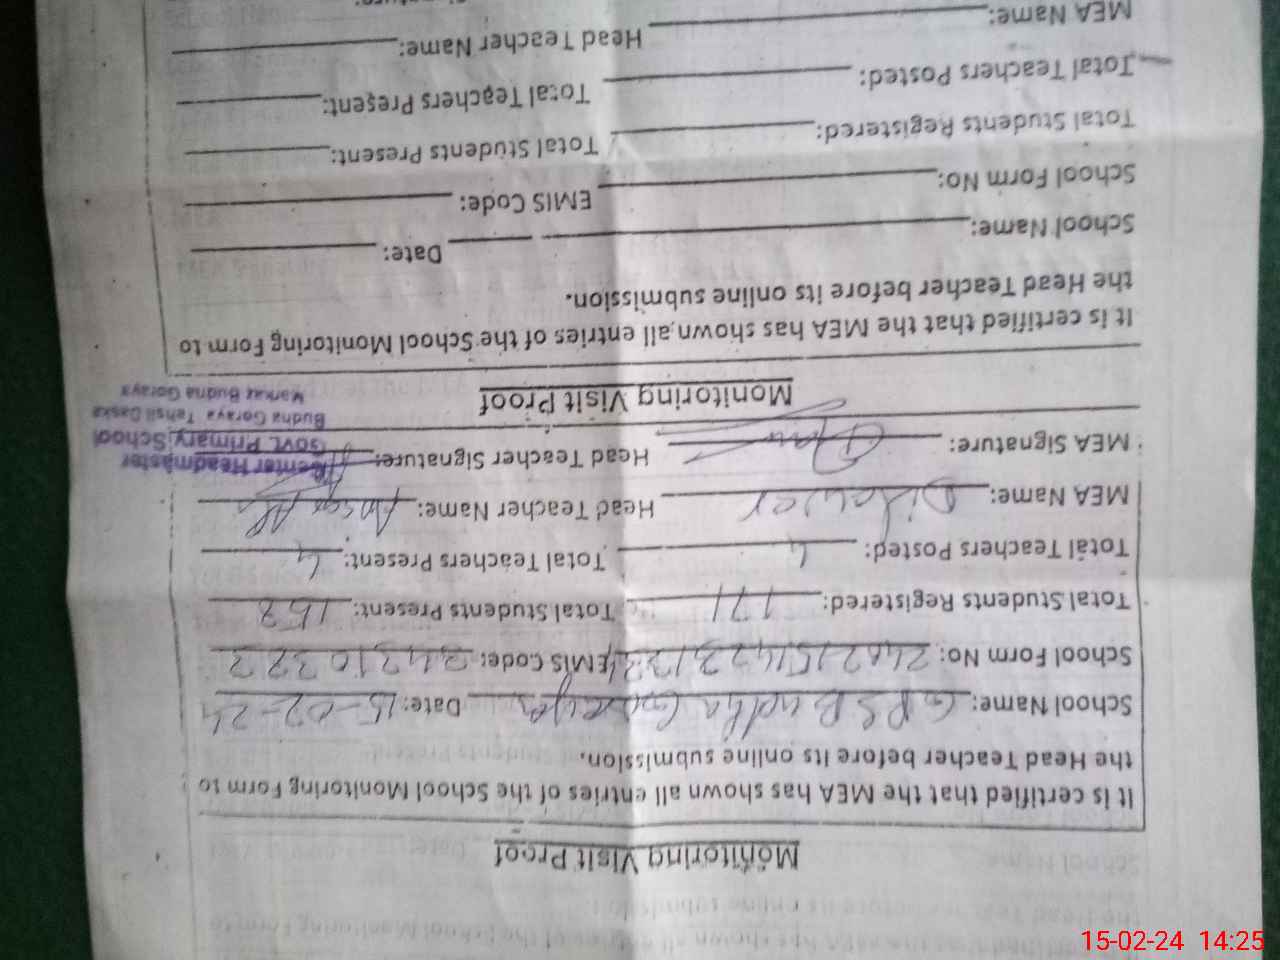 Monitoring Visit Proof
It is certified that the MEA has shown all entries of the School Monitoring Form to
the Head Teacher before its online submission.
School Name: GPS Budha Goraya Date: 15-02-24
School Form No: EMIS Code: 34310383
Total Students Registered: 171 Total Students Present: 158
Total Teachers Posted: 4 Total Teachers Present: 4
MEA Name: Dilawer Head Teacher Name: Ansar Ali
MEA Signature: Head Teacher Signature:
Center Headmaster
Govt. Primary School
Budha Goraya Tehsil Daska
Markaz Budha Goraya
Monitoring Visit Proof
It is certified that the MEA has shown all entries of the School Monitoring Form to
the Head Teacher before its online submission.
School Name: Date:
School Form No: EMIS Code:
Total Students Registered: Total Students Present:
Total Teachers Posted: Total Teachers Present:
MEA Name: Head Teacher Name:
15-02-24 14:25